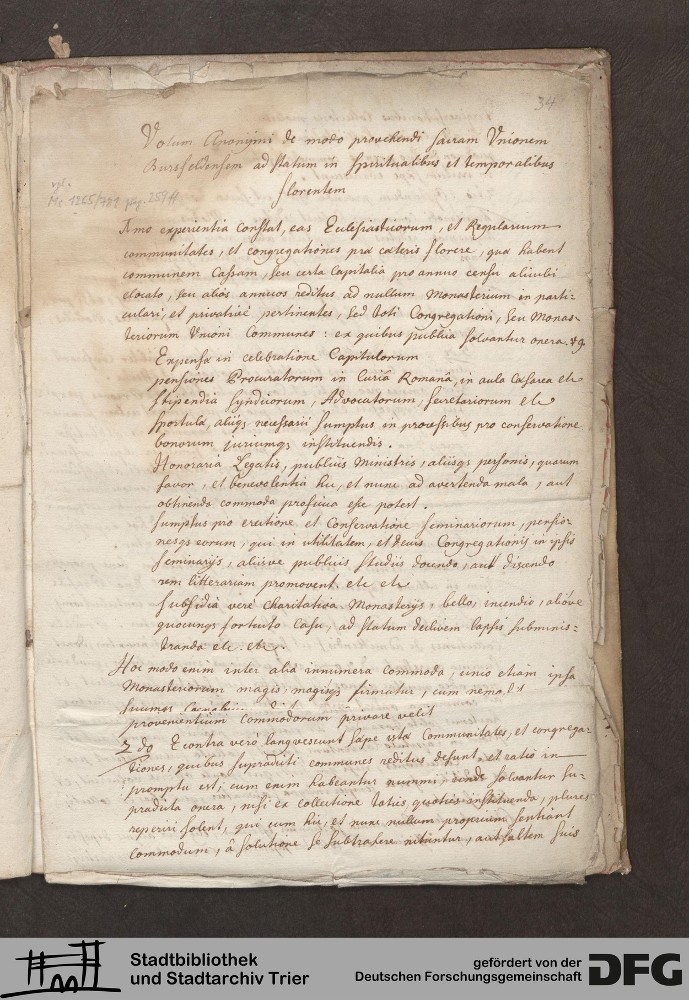 34
Votum Anonymi de modo provehendi sacram Unionem
Bursfeldensem ad statum in spiritualibus et temporalibus
florentem
vgl.
Hs. 1265/781 pag. 259 ff
1mo experientia constat, eas Eclesiasticorum, et Regularium
communitates, et congregationes præ cæteris florere, quæ habent
communem Cassam, seu certa Capitalia pro annuo censu alicubi
elocato, seu alios annuos reditus ad nullum Monasterium in parti-
culari, et privativè pertinentes, sed toti Congregationi, seu Monas-
teriorum Unioni Communes: ex quibus publica solvantur onera. v.g.
Expensæ in celebratione Capitulorum
pensiones Procuratorum in Curiâ Romanâ, in aula Cæsarea etc
stipendia Syndicorum, Advocatorum, Secretariorum etc
sportulæ, aliiq; necessarii sumptus in processibus pro conservatione
bonorum juriumq; instituendis.
Honoraria Legatis, publicis Ministris, aliisq; personis, quarum
favor, et benevolentia hic, et nunc ad avertenda mala, aut
obtinenda commoda proficua esse potest.
sumptus pro erectione et Conservatione seminariorum, pensio-
nesq; eorum, qui in utilitatem, et decus Congregationis in ipsis
seminarijs, aliisve publicis studiis docendo, aut discendo
rem litterariam promovent etc etc
subsidia verè charitativa Monasterijs, bello, incendio, aliove
quocunq; fortuito Casu, ad statum declivem lapsis subminis-
tranda etc. etc.
Hoc modo enim inter alia innumera commoda, unio etiam ipsa
Monasteriorum magis, magisq; firmatur, cum nemo
provenientium commodorum privare velit
2do E contra verò languescunt sæpe istæ Communitates, et congrega-
tiones, quibus supradicti communes reditus desunt, et ratio in
promptu est; cum enim habeantur nummi, unde solvantur su-
pradicta onera, nisi ex collectione toties quoties instituenda, plures
reperiri solent, qui cum hic, et nunc nullum proprium sentiant
Commodum, à solutione se subtrahere nituntur, aut saltem suis
Stadtbibliothek
und Stadtarchiv Trier
gefördert von der
Deutschen Forschungsgemeinschaft
DFG